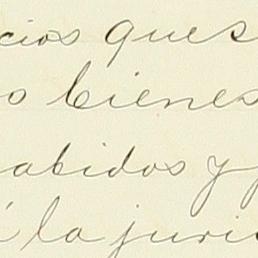 cios ques
o bienes
abidos y p
á la juris